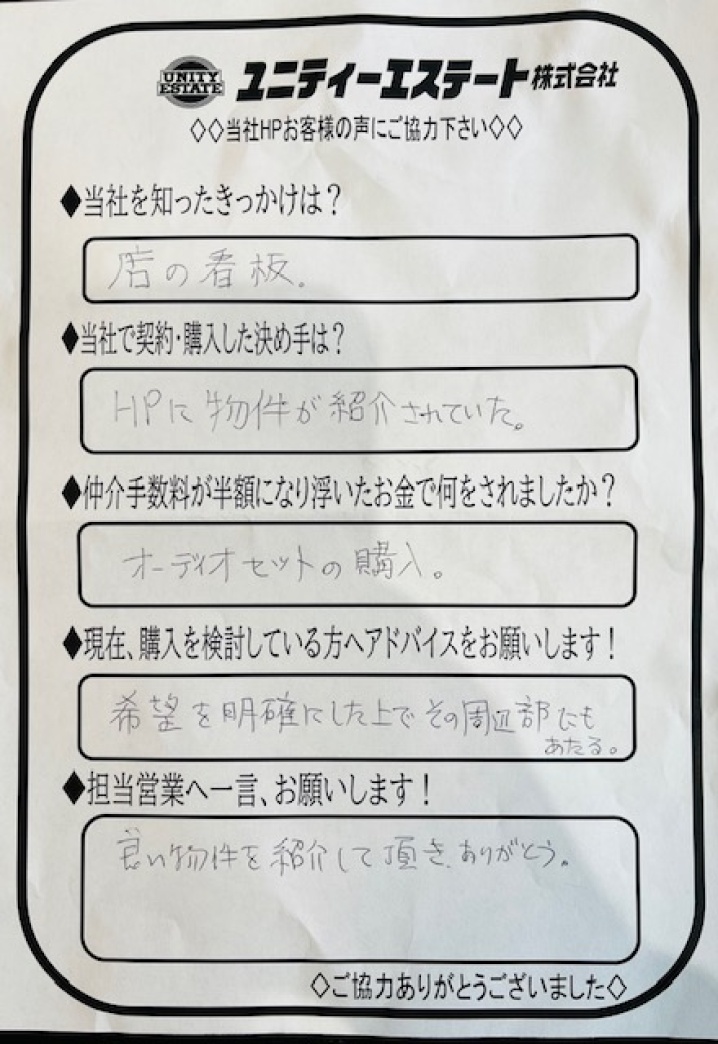 UNITY
ESTATE
ユニティーエステート株式会社
◇◇当社HPお客様の声にご協力下さい◇◇
◆当社を知ったきっかけは？
店の看板.
◆当社で契約・購入した決め手は？
HPに物件が紹介されていた。
◆仲介手数料が半額になり浮いたお金で何をされましたか？
オーディオセットの購入。
◆現在、購入を検討している方へアドバイスをお願いします！
希望を明確にした上でその周辺部にも
あたる。
◆担当営業へ一言、お願いします！
良い物件を紹介して頂き、ありがとう。
◇ご協力ありがとうございました◇